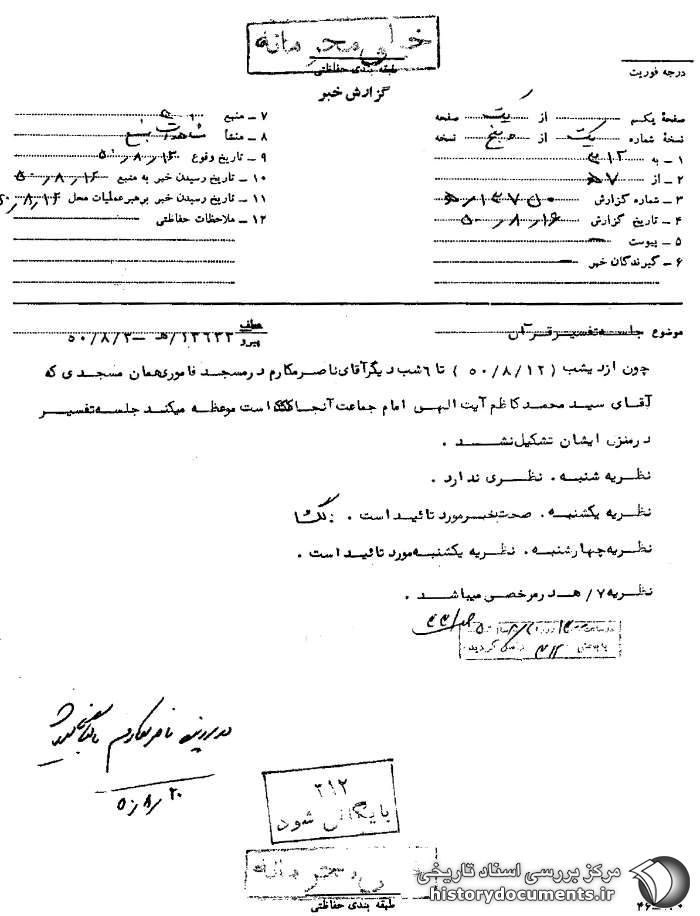 خیلی محرمانه
طبقه بندی حفاظتی
درجه فوریت
گزارش خبر
صفحهٔ یکم از یک صفحه
نسخهٔ شماره یک از پنج نسخه
۱ ـ به ۳۱۲
۲ ـ از ۷ه
۳ ـ شماره گزارش
۴ ـ تاریخ گزارش ۵۰٫۸٫۱۶
۵ ـ پیوست ـ
۶ ـ گیرندگان خبر ـ
۷ ـ منبع
۸ ـ منشأ مشاهدات منبع
۹ ـ تاریخ وقوع ۵۰٫۸٫۱۳
۱۰ ـ تاریخ رسیدن خبر به منبع ۵۰٫۸٫۱۶
۱۱ ـ تاریخ رسیدن خبر برهبر عملیات محل ۵۰٫۸٫۱۶
۱۲ ـ ملاحظات حفاظتی
موضوع جلسه تفسیر قرآن
عطف
پیرو
۱۳۶۳۳/هـ ـ ۵۰/۸/۳
چون ازدیشب (۵۰/۸/۱۲) تا ۶ شب دیگرآقای ناصرمکارم درمسجد فاموری همان مسجدی که
آقای سید محمدکاظم آیت الهی امام جماعت آنجا است موعظه میکند جلسه تفسیر
درمنزل ایشان تشکیل نشد .
نظریه شنبه . نظری ندارد .
نظریه یکشنبه . صحت خبرمورد تائید است .
نظریه چهارشنبه . نظریه یکشنبه مورد تائید است .
نظریه ۷/هـ درمرخصی میباشد .
به بخش ۳۱۲ گردید
در پرونده ناصر مکارم بایگانی شود
۵۰٫۸٫۲۰
۳۱۲
بایگانی شود
خیلی محرمانه
طبقه بندی حفاظتی
مرکز بررسی اسناد تاریخی
historydocuments.ir